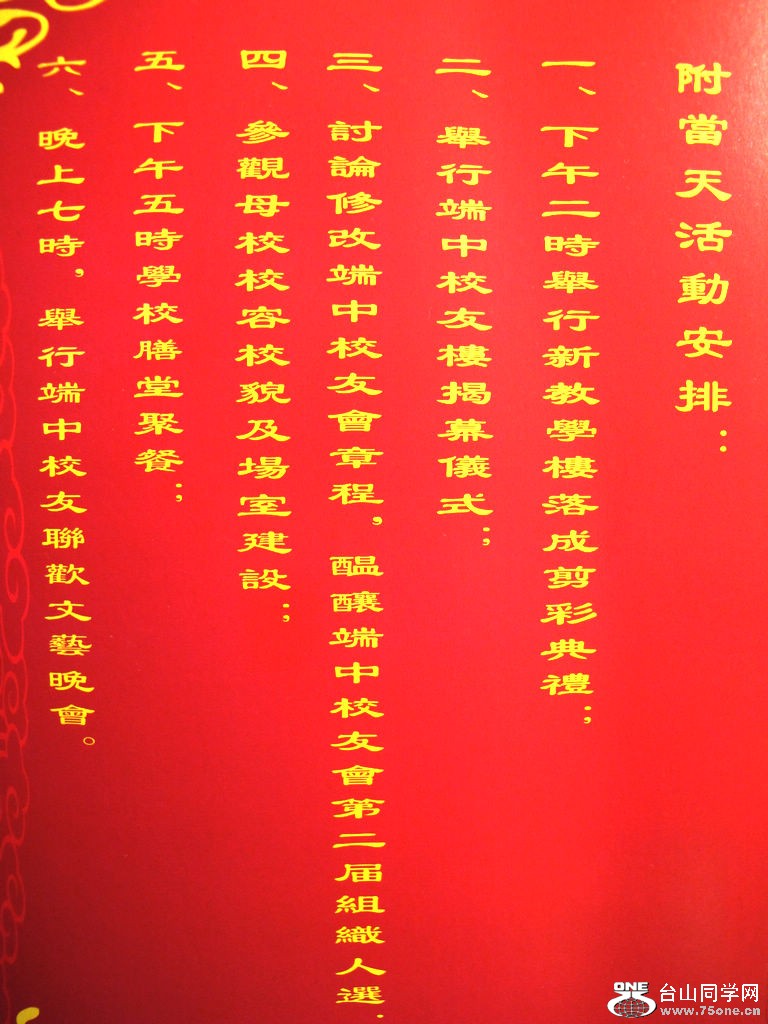 附當天活動安排：
一、下午二時舉行新教學樓落成剪彩典禮；
二、舉行端中校友樓揭幕儀式；
三、討論修改端中校友會章程，醞釀端中校友會第二届組織人選；
四、參觀母校校容校貌及場室建設；
五、下午五時學校膳堂聚餐；
六、晚上七時，舉行端中校友聯歡文藝晚會。
ONE 台山同学网
www.75one.cn